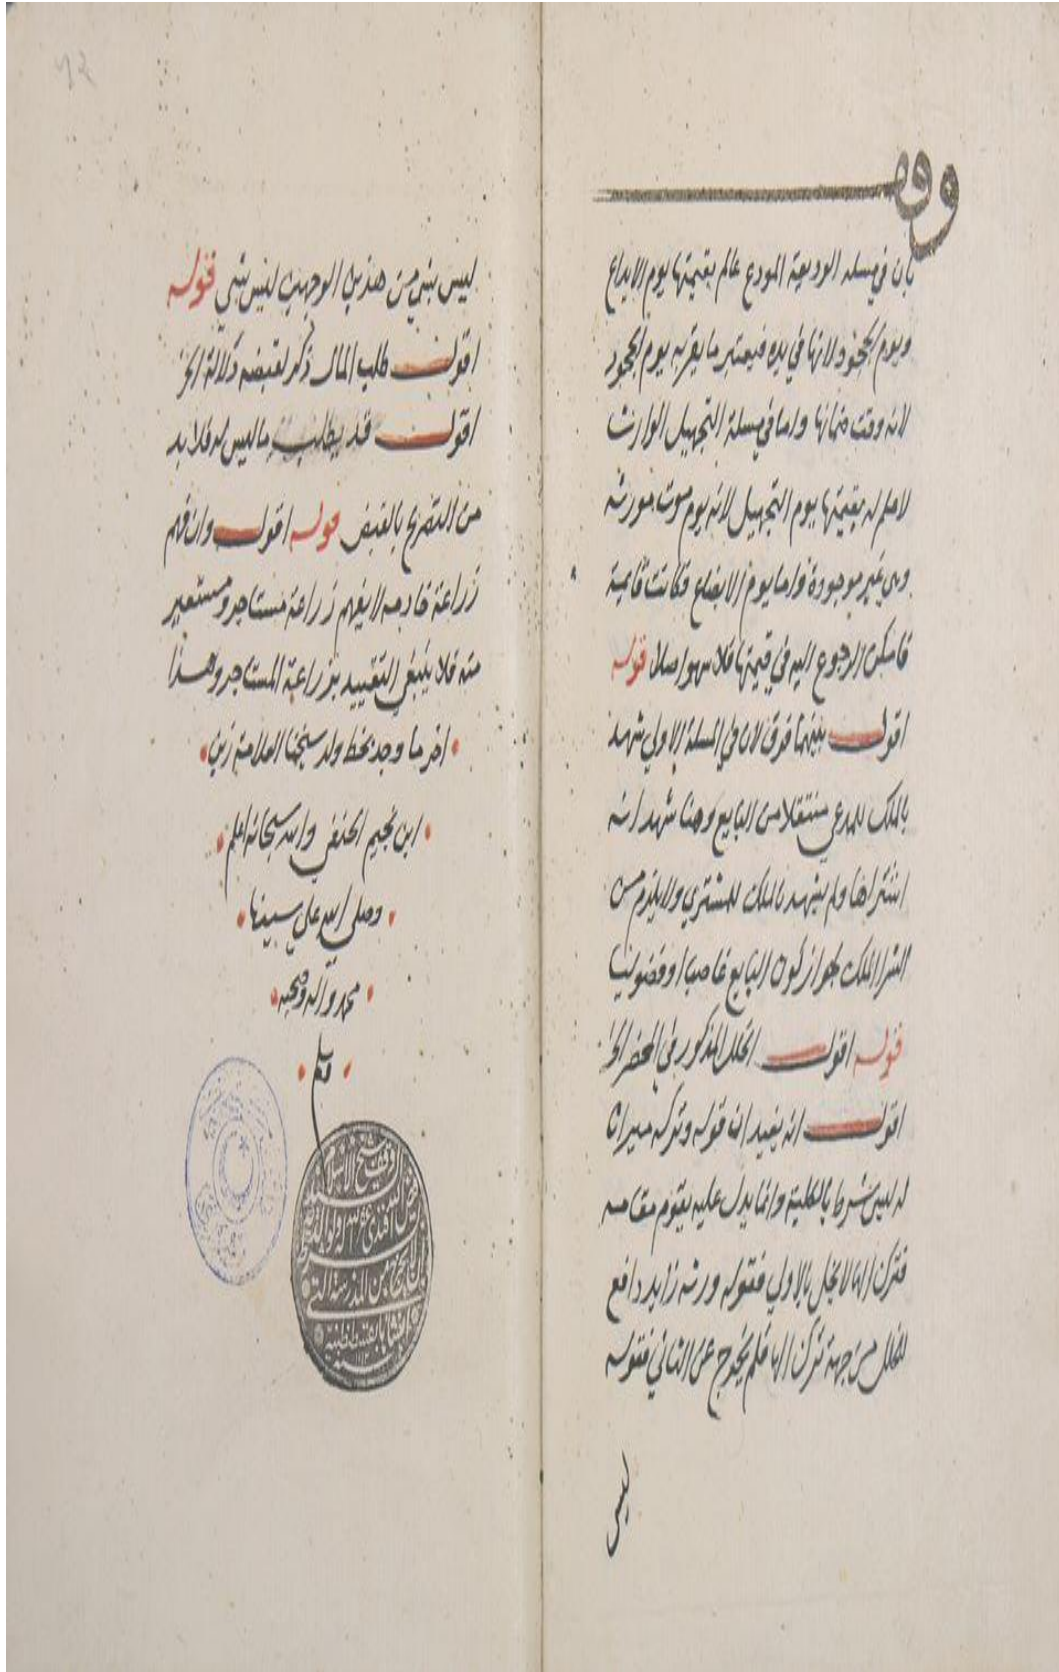 وقف
بان في مسله الوديعة المودع عالم بقيمتها يوم الايداع
ويوم الجحود لانها في يده فيعتبر ما يقر به يوم الجحود
لانه وقت ضمانها واما في مسلة التجهيل الوارث
لا علم له بقيمتها يوم التجهيل لانه يوم موت مورثه
وهي غير موجودة واما يوم الايضاع فكانت قايمة
فامكن الرجوع اليه في قيمتها فلا سهو اصلا قوله
اقول بينهما فرق لان في المسلة الاولي شهد
بالملك للمدعي منتقلا من البايع وهنا شهد انه
اشتراها ولم يشهد بالملك للمشتري ولا يلزم من
الشرا الملك لجواز كون البايع غاصبا او فضوليا
قوله اقول الخلل المذكور في المحضر الخ
اقول انه يفيد ان قوله وتركه ميراثا
له ليس شرطا بالكلية وانما يدل عليه يقوم مقامه
فترك الها لا يخل بالاولي فقوله ورثه زايد دافع
للخلل من جهة ترك الها فلم يخرج عن الثاني فقوله
ليس
ليس بشي من هذين الوجهين ليس بشي قوله
اقول طلب المال ذكر لقبضه دلالة الخ
اقول قد يطلب ما ليس له فلا بد
من التصريح بالقبض قوله اقول وان فهم
زراعة فادمه لا يفهم زراعة مستاجر ومستعير
منه فلا ينبغي التقييد بزراعة المستاجر وهذا
اخر ما وجد بخط ولد شيخنا العلامة زين
ابن نجيم الحنفي والله سبحانه اعلم
وصلي الله علي سيدنا
محمد واله وصحبه
وسلم